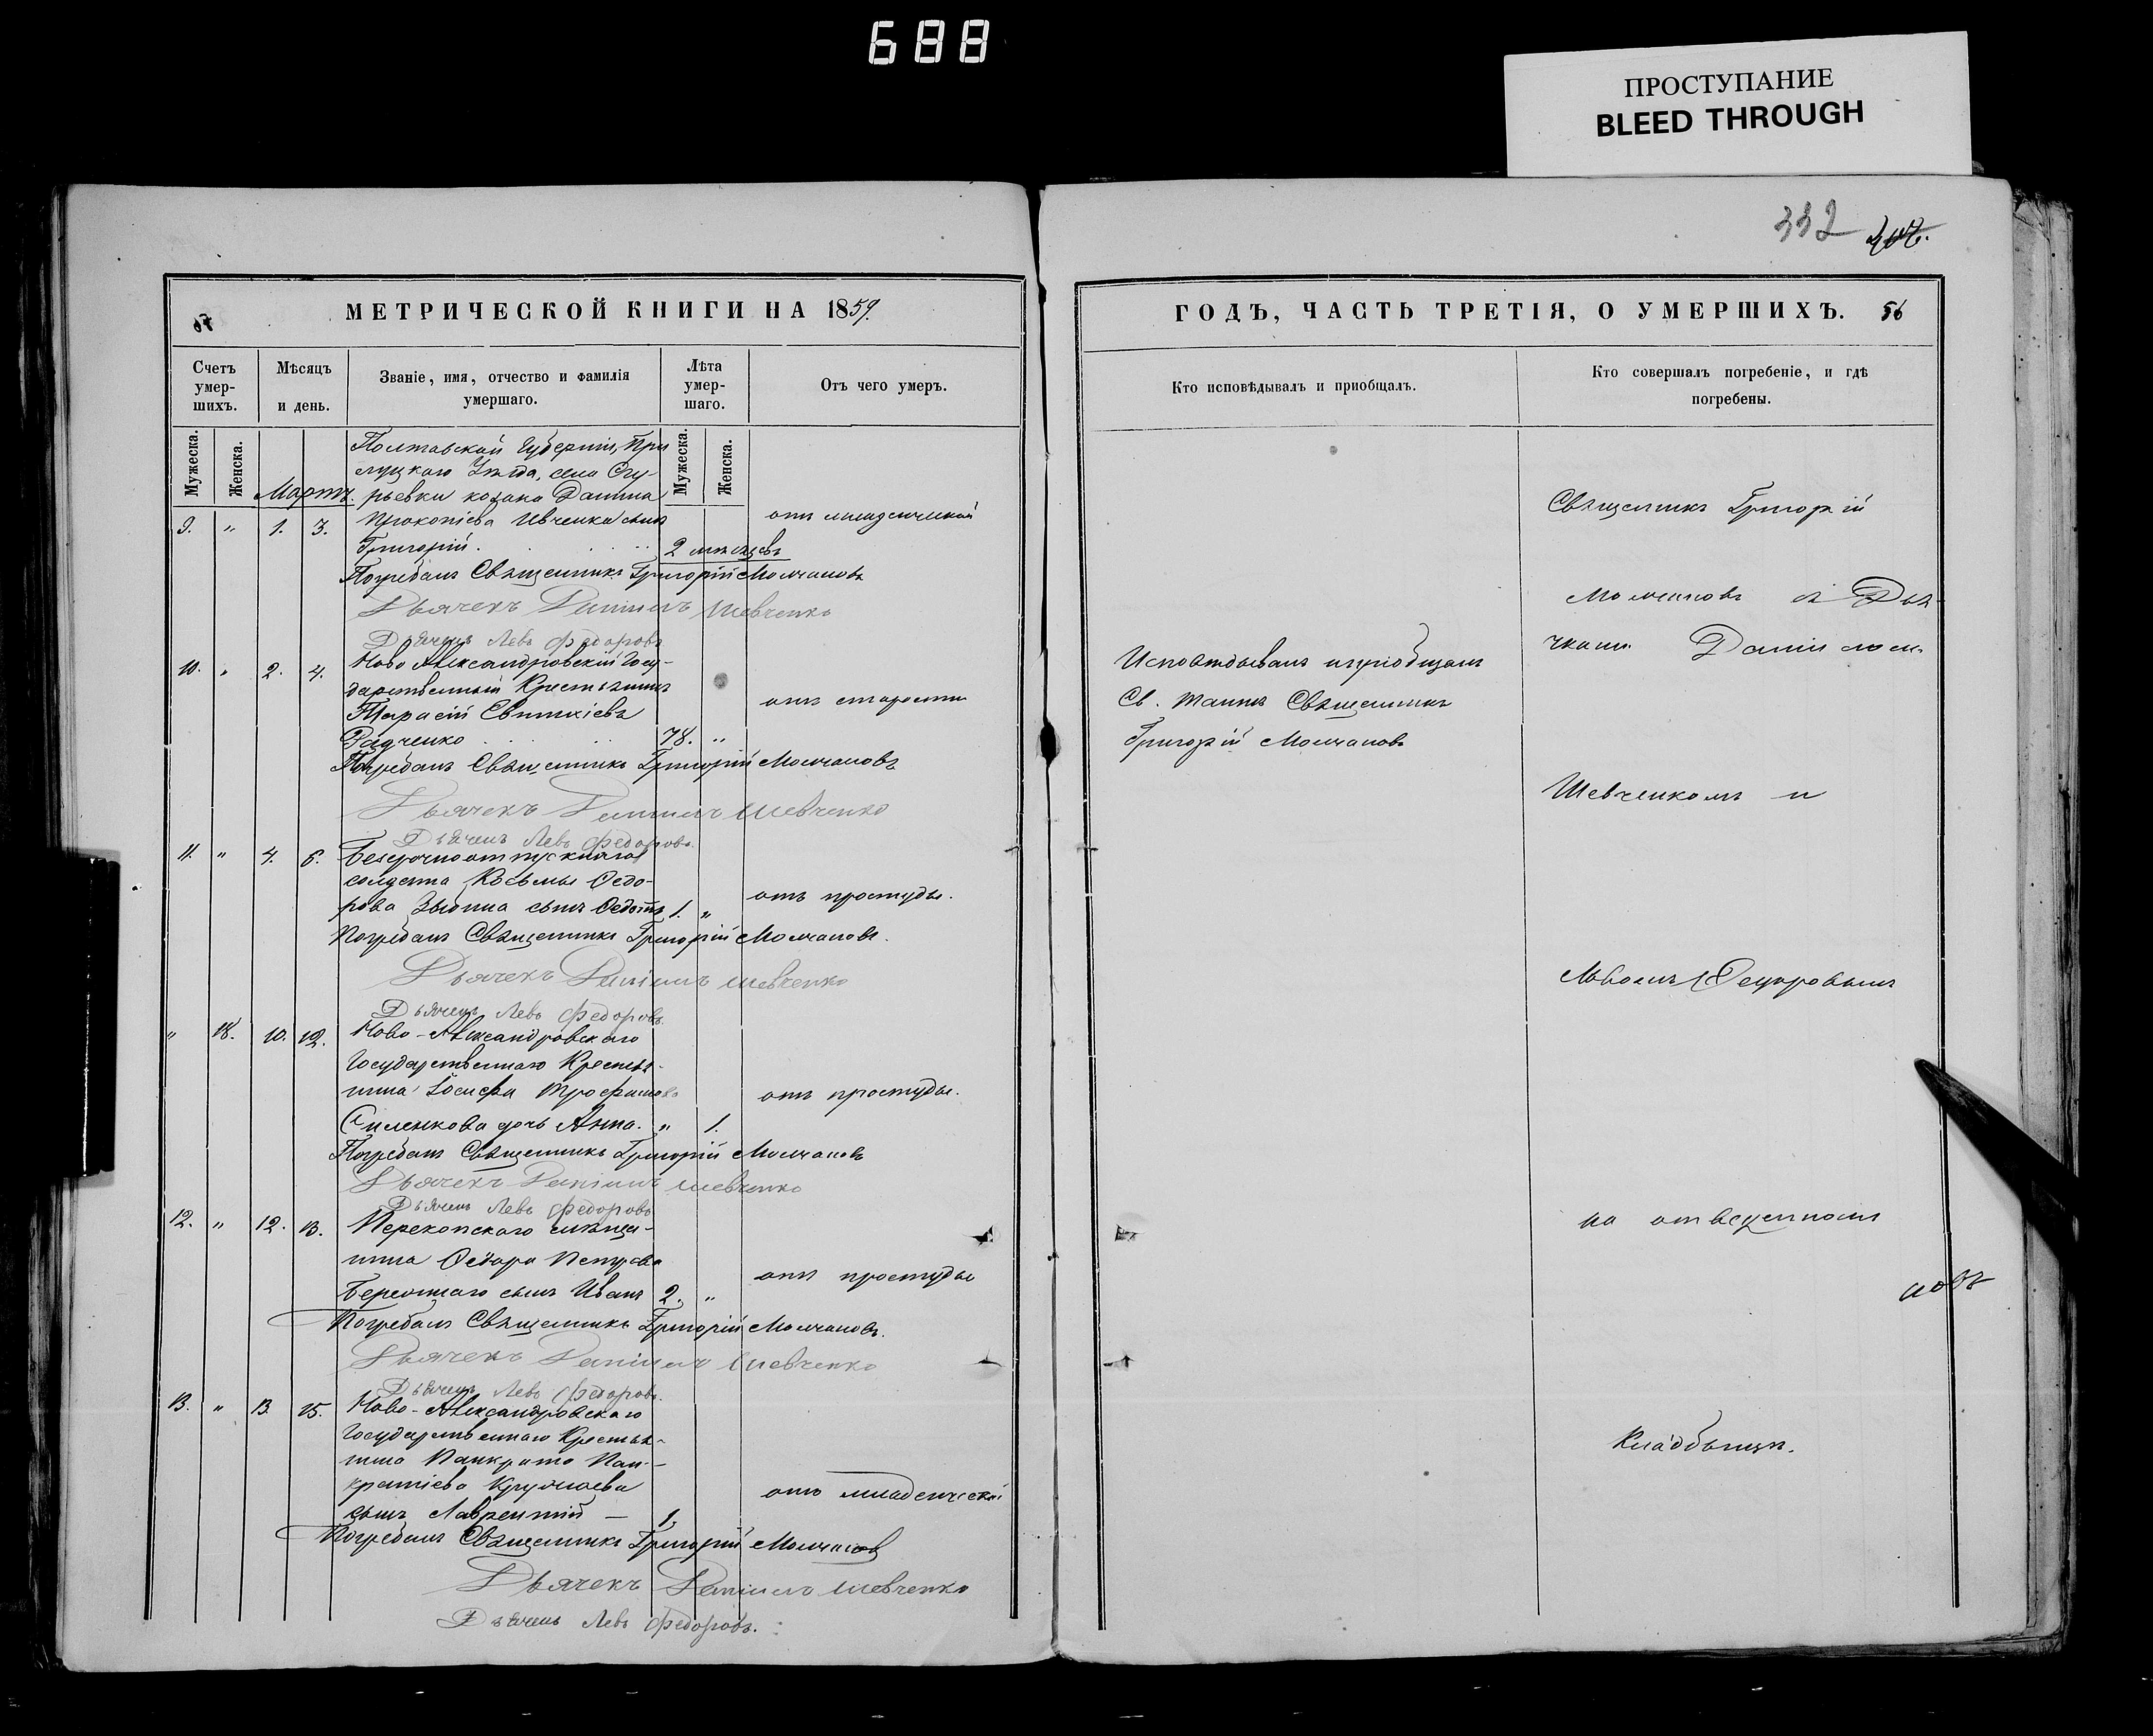 688
ПРОСТУПАНИЕ
BLEED THROUGH
332
МЕТРИЧЕСКОЙ КНИГИ НА 1859.
Счетъ умер- шихъ.
Мѣсяцъ и день.
Званіе, имя, отчество и фамилія умершаго.
Лѣта умер- шаго.
Отъ чего умеръ.
Мужеска.
Женска.
Мужеска.
Женска.
Полтавской Губерніи, При
луцкаго Уѣзда, села Огу-
Мартъ. рьевки козака Даніила
9. " 1. 3. Прокопіева Ивченка сынъ отъ младенческой
Григорій. 2 мѣсяцевъ
Погребалъ Священникъ Григорій Молчановъ
Дьячекъ Даніилъ Шевченко
Дьячекъ Левъ Федоровъ
10. " 2. 4. Ново Александровскій Госу-
дарственный Крестьянинъ
Тарасій отъ старости
Радченко 78. "
Погребалъ Священникъ Григорій Молчановъ
Дьячекъ Даніилъ Шевченко
Дьячекъ Левъ Федоровъ.
11. " 4. 6. Безсрочноотпускнаго
солдата Козьмы Ѳедо-
рова сынъ Ѳедотъ 1. " отъ простуды.
Погребалъ Священникъ Григорій Молчановъ.
Дьячекъ Даніилъ Шевченко
Дьячекъ Левъ Федоровъ.
" 18. 10. 12. Ново-Александровскаго
Государственнаго Крестья-
нина Іосифа Трофимова отъ простуды.
Силенкова дочь Анна. " 1.
Погребалъ Священникъ Григорій Молчановъ
Дьячекъ Даніилъ Шевченко
Дьячекъ Левъ Федоровъ
12. " 12. 13. Перекопскаго мѣща-
нина Ѳедора Петрова отъ простуды
сынъ Иванъ 2. "
Погребалъ Священникъ Григорій Молчановъ.
Дьячекъ Даніилъ Шевченко
Дьячекъ Левъ Федоровъ.
13. " 13. 15. Ново-Александровскаго
Государственнаго Крестья-
нина Панкрата Пан-
кратіева отъ младенческой
сынъ Лаврентій — 1.
Погребалъ Священникъ Григорій Молчановъ
Дьячекъ Даніилъ Шевченко
Дьячекъ Левъ Федоровъ.
ГОДЪ, ЧАСТЬ ТРЕТІЯ, О УМЕРШИХЪ. 56
Кто исповѣдывалъ и пріобщалъ.
Кто совершалъ погребеніе, и гдѣ погребены.
Исповѣдывалъ и пріобщалъ
Св. Таинъ Священникъ
Григорій Молчановъ
Священникъ Григорій
Молчановъ съ Дья-
чками Даніиломъ
Шевченкомъ и
Львомъ Ѳедоровымъ
на отведенномъ
Кладбищѣ.